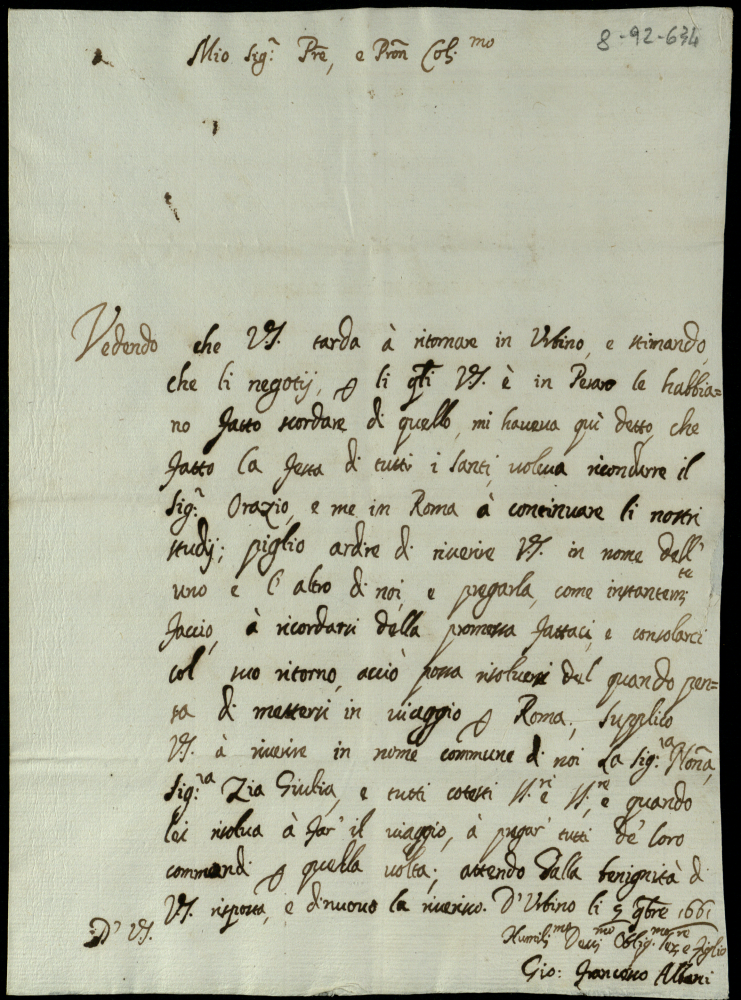 8-92-634
Mio Sig.r Pre, e Pron Col.mo
Vedendo che VS. tarda à ritornare in Urbino, e stimando,
che li negotij, p li qli VS. è in Pesaro le habbia=
no fatto scordare di quello, mi haveva quì detto, che
fatto la festa di tutti i Santi, voleva ricondurre il
Sig.r Orazio, e me in Roma à continuare li nostri
studij; piglio ardire di riverire VS. in nome dell'
uno e l'altro di noi, e pregarla, come instantem.te
faccio, à ricordarsi della promessa fattaci, e consolarci
col suo ritorno, acciò possa risolversi del quando pen=
sa di mettersi in viaggio p Roma; supplico
VS. à riverire in nome commune di noi La Sig.ra Nonna,
Sig.ra Zia Giulia, e tutti cotesti SS.ri e SS.re, e quando
lei risolva à far' il viaggio, à pregar' tutti de' loro
commandi p quella volta; attendo dalla benignità di
VS. risposta, e di nuovo la riverisco. D'Urbino li 5 9bre 1661
D' VS.
Humiliss.mo Dev.mo Oblig.mo Ser.re e Figlio
Gio: Francesco Albani